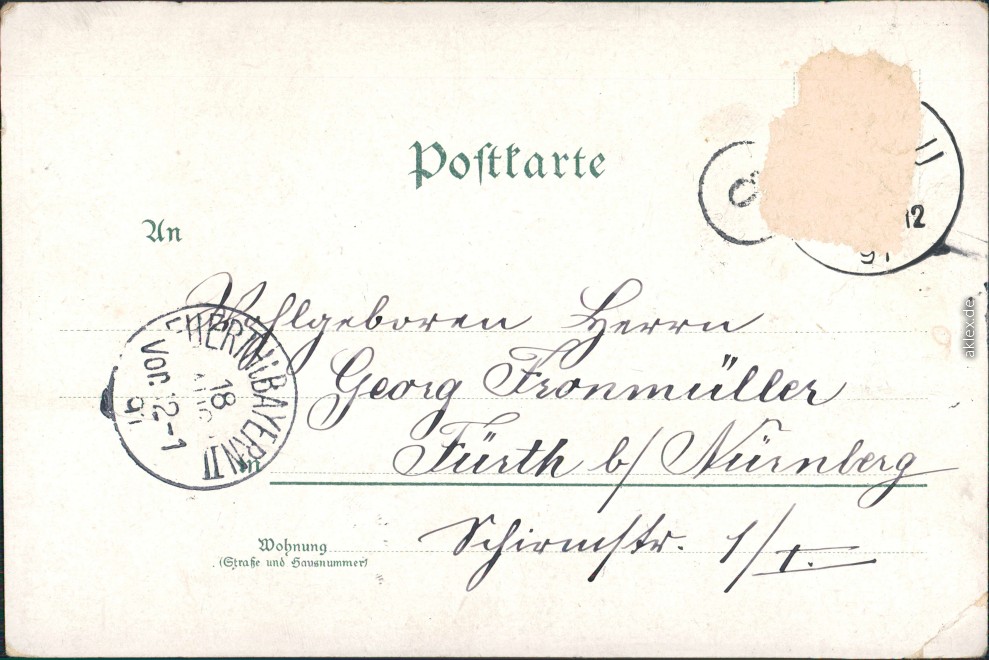 Postkarte
An
Wohlgeboren Herrn
Georg Fronmüller
in
Fürth b/ Nürnberg
Wohnung
(Straße und Hausnummer)
Schirmstr. 1/I.
FUERTH.BAYERN.II
18
Vor. 12-1
97
12
97
aklex.de